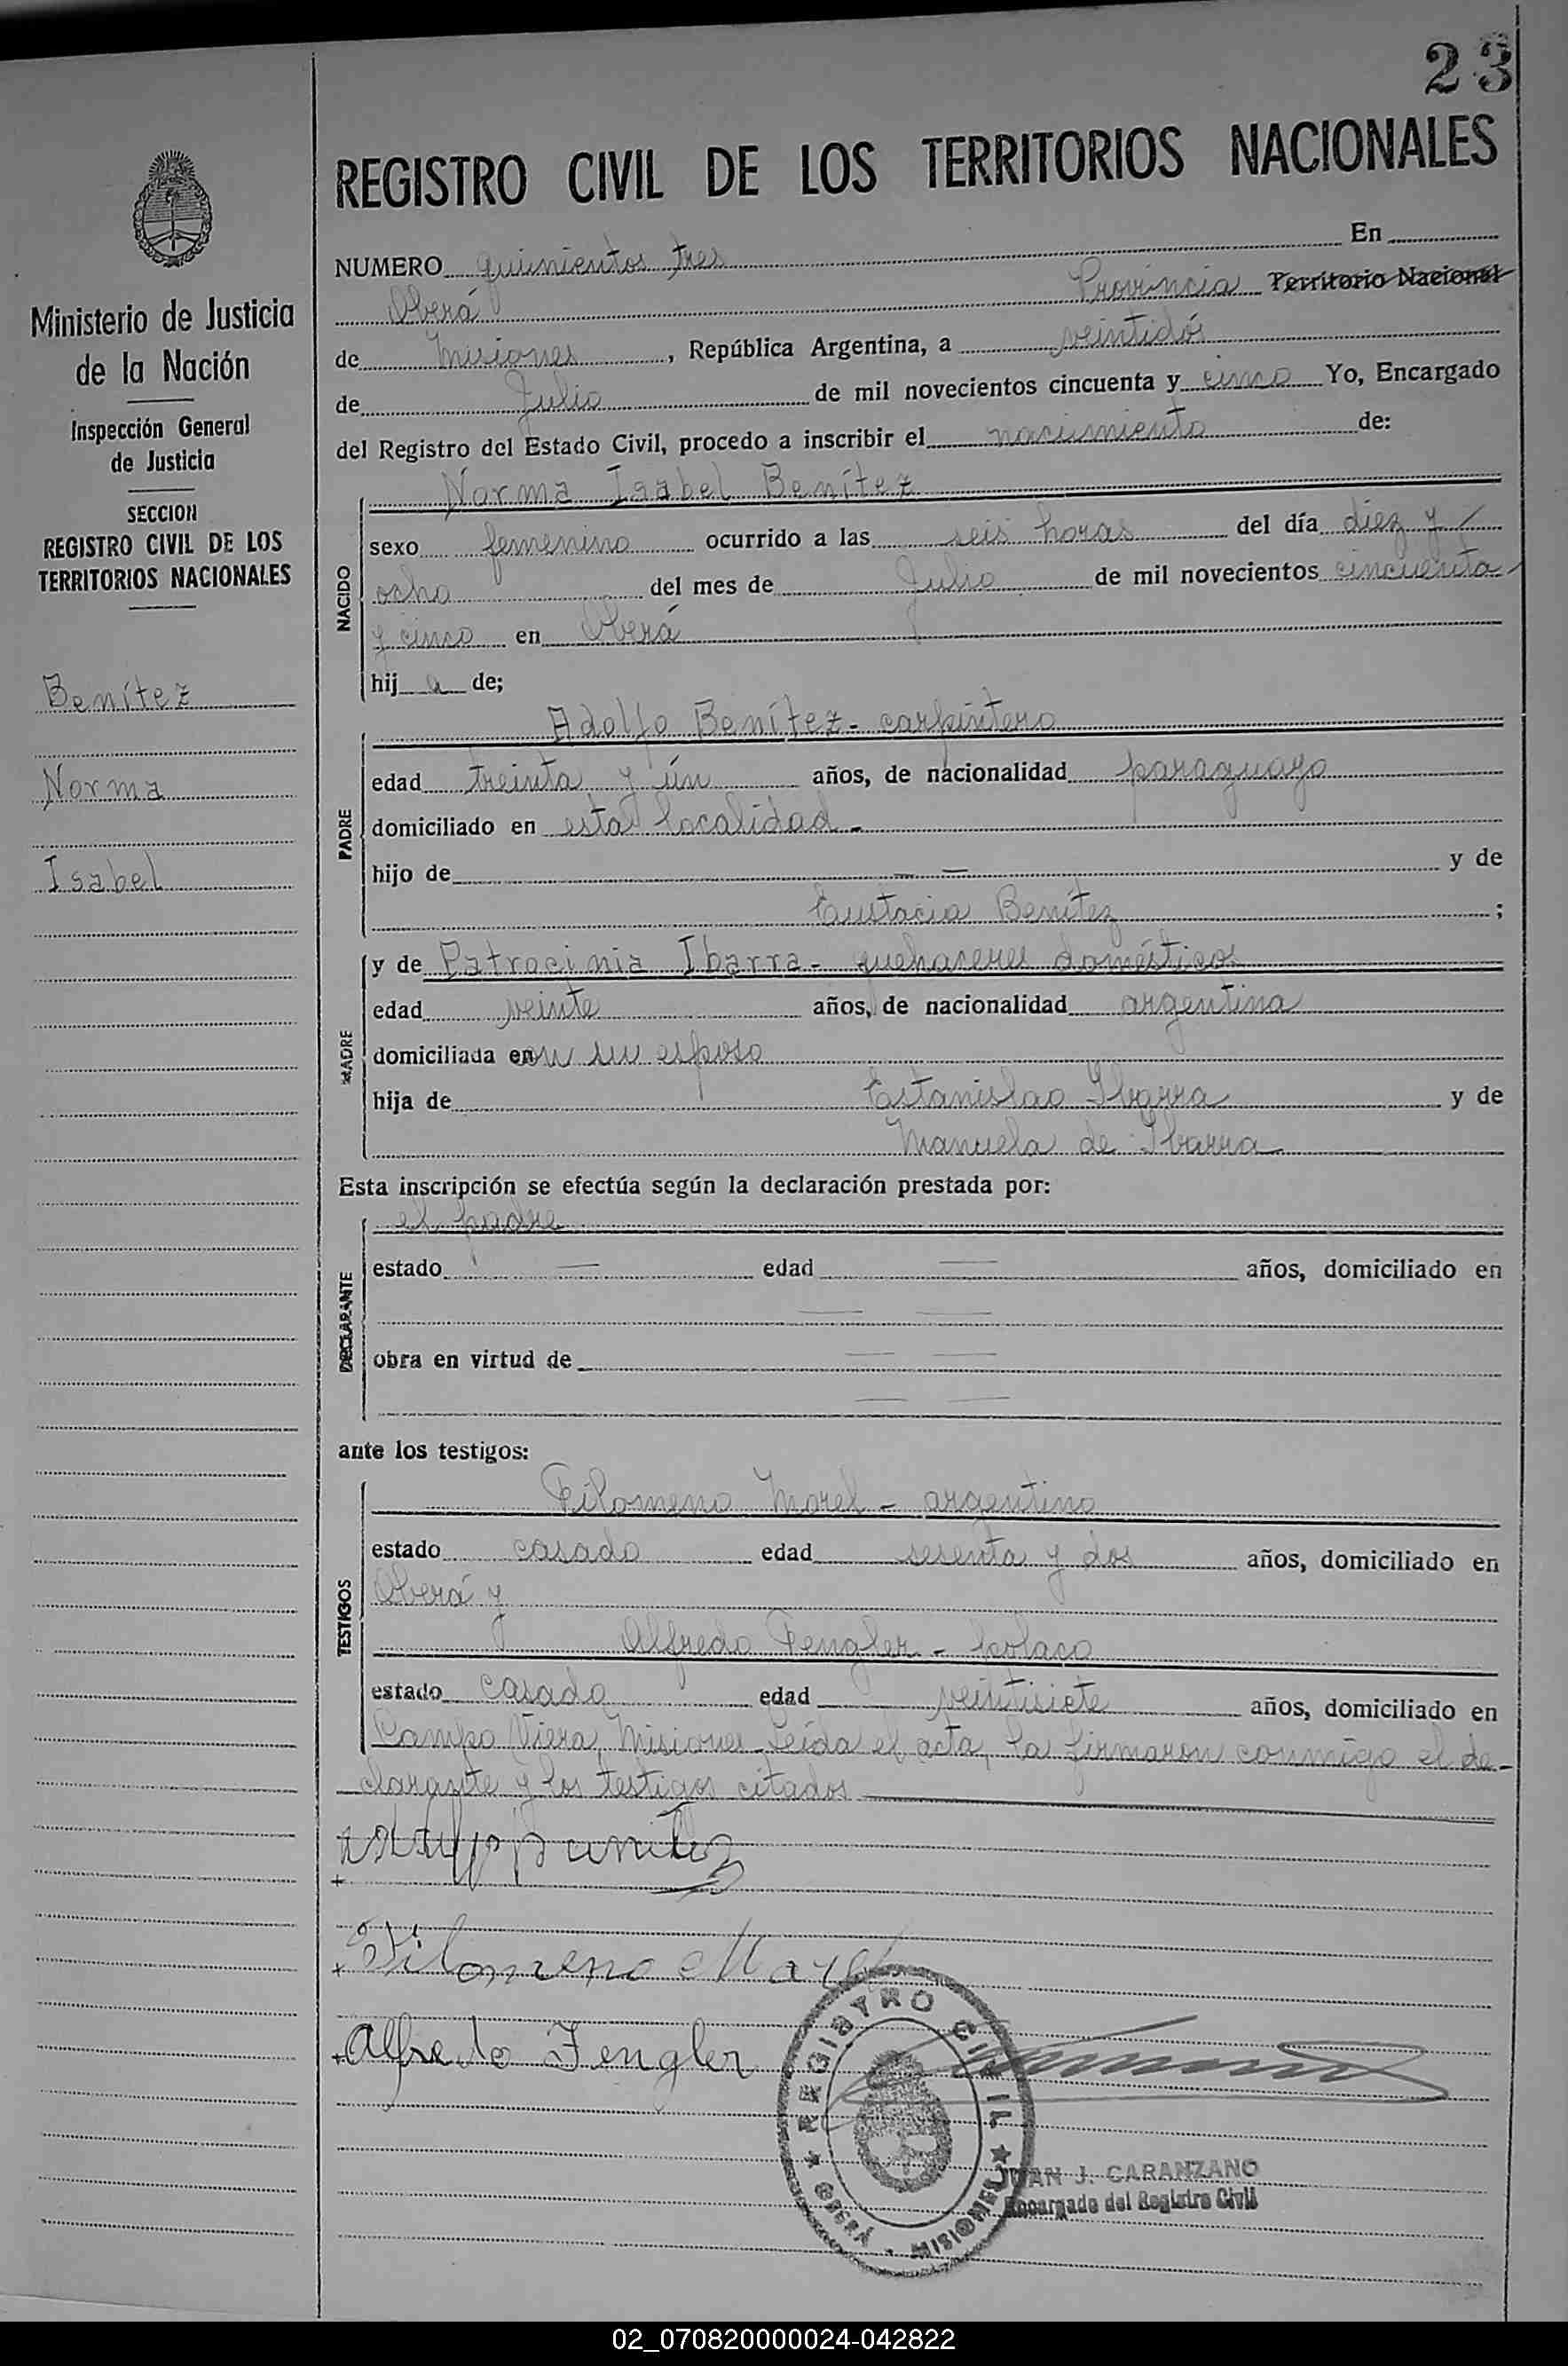 23
REGISTRO CIVIL DE LOS TERRITORIOS NACIONALES
Ministerio de Justicia
de la Nación
Inspección General
de Justicia
SECCION
REGISTRO CIVIL DE LOS
TERRITORIOS NACIONALES
Benítez
Norma
Isabel
NUMERO quinientos tres En
Oberá Provincia Territorio Nacional
de Misiones, República Argentina, a veintidós
de Julio de mil novecientos cincuenta y cinco Yo, Encargado
del Registro del Estado Civil, procedo a inscribir el nacimiento de:
Norma Isabel Benítez
NACIDO
sexo femenino ocurrido a las seis horas del día diez y
ocho del mes de Julio de mil novecientos cincuenta
y cinco en Oberá
hija de;
Adolfo Benítez - carpintero
PADRE
edad treinta y ún años, de nacionalidad paraguayo
domiciliado en esta localidad -
hijo de — — y de
Eustacia Benítez ;
y de Patrocinia Ibarra - quehaceres domésticos
MADRE
edad veinte años, de nacionalidad argentina
domiciliada en con su esposo
hija de Estanislao Ibarra y de
Manuela de Ibarra
Esta inscripción se efectúa según la declaración prestada por:
el padre
DECLARANTE
estado — edad — años, domiciliado en
— —
obra en virtud de — —
— —
ante los testigos:
Filomeno Morel - argentino
TESTIGOS
estado casado edad sesenta y dos años, domiciliado en
Oberá y
Alfredo Fengler - polaco
estado casado edad veintisiete años, domiciliado en
Campo Viera, Misiones. Leída el acta, la firmaron conmigo el de-
clarante y los testigos citados
Filomeno Morel
Alfredo Fengler
REGISTRO CIVIL
OBERÁ - MISIONES
JUAN J. CARANZANO
Encargado del Registro Civil
02_070820000024-042822